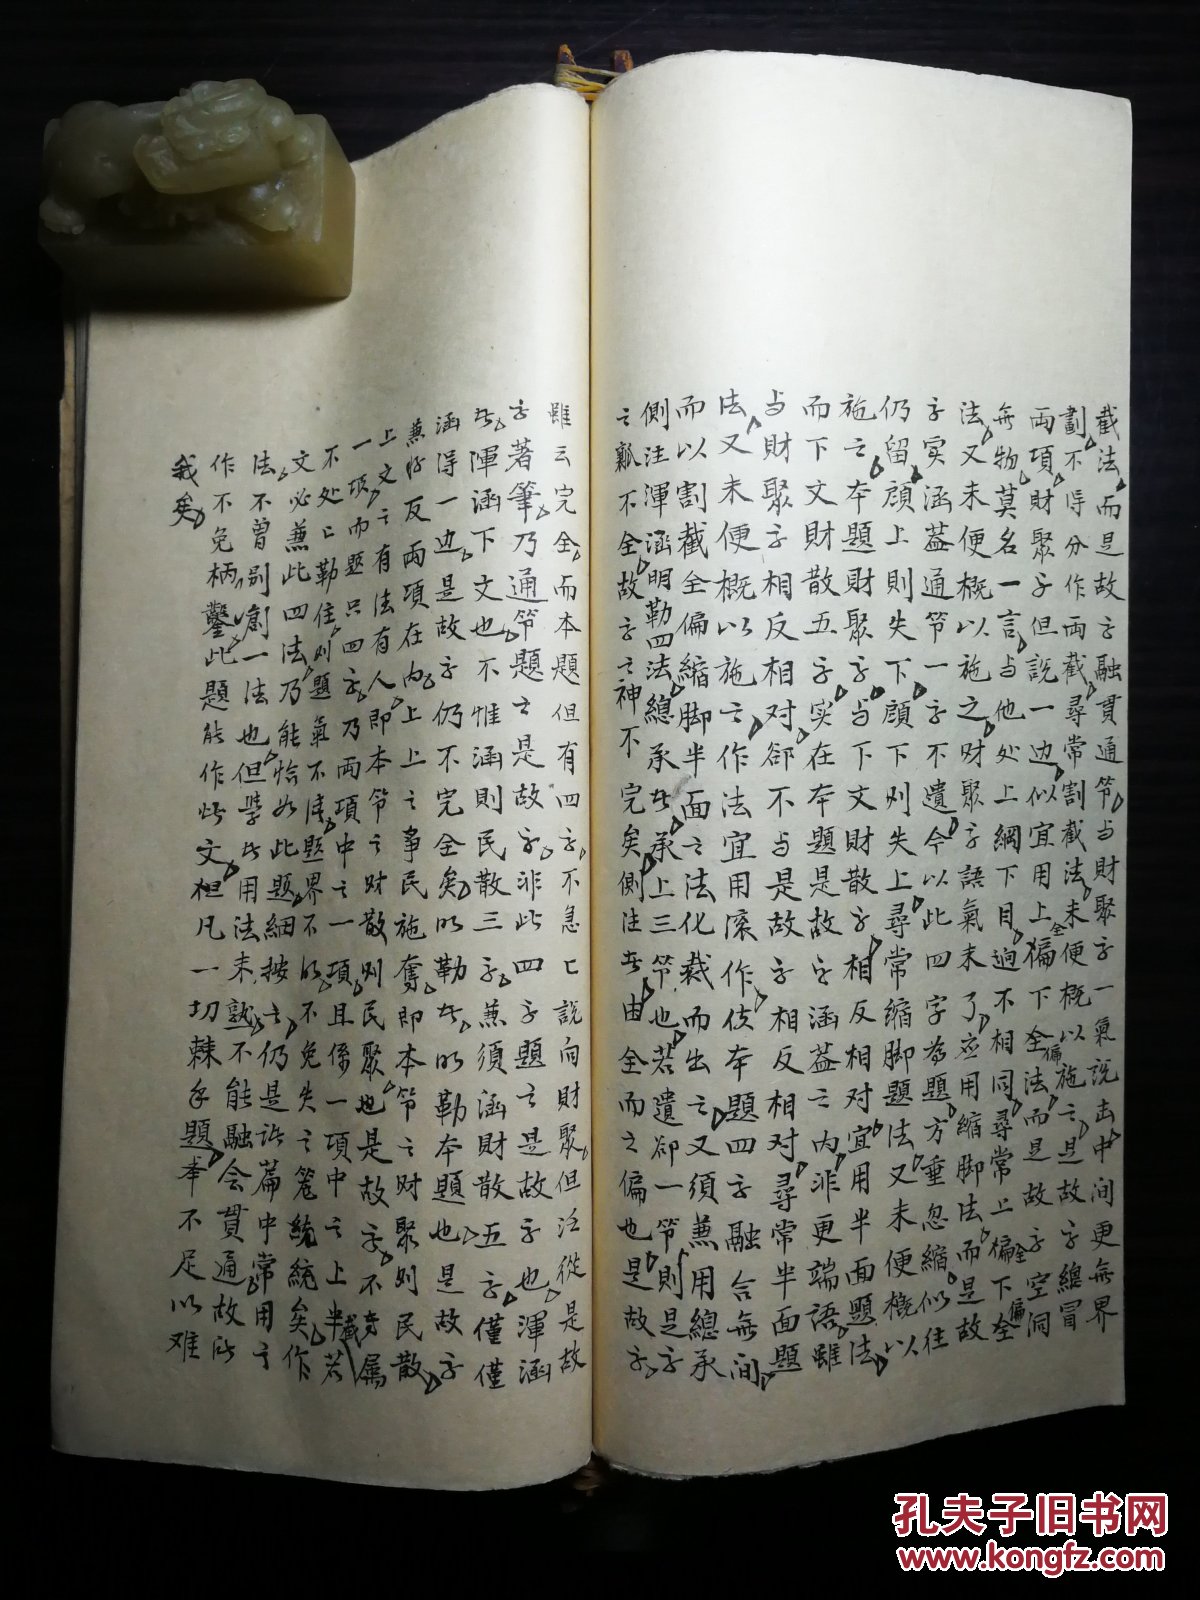 截法而是故字融貫通節与財聚字一氣説出中间更無界
劃不得分作両截尋常割截法未便概以施之是故字總冒
両項財聚字但説一边似宜用上全偏下全偏法而是故字空洞
無物莫名一言与他处上綱下目迥不相同尋常上偏全下全偏
法又未便概以施之財聚字語氣未了应用縮脚法而是故
字实涵葢通節一字不遺今以此四字為題方垂忽縮似往
仍留顧上則失下顧下则失上尋常縮脚題法又未便概以
施之本題財聚字与下文財散字相反相对宜用半面題法
而下文財散五字实在本題是故字涵葢之内非更端語雖
与財聚字相反相对郤不与是故字相反相对尋常半面題
法又未便概以施之作法宜用滚作伎本題四字融合無间
而以割截全偏縮脚半面之法化裁而出之又須兼用總承
側注渾涵明勒四法總承者承上三節也若遺却一節則是字
之瓢不全故字之神不完矣側注者由全而之偏也是故字
雖云完全而本題但有四字不急已説向財聚但泛從是故
字著筆乃通節題之是故字非此四字題之是故字也渾涵
者渾涵下文也不惟涵則民散三字兼須涵財散五字僅僅
涵得一边是故字仍不完全矣明勒者明勒本題也是故字
兼将反両項在内上上之争民施奪即本節之财聚则民散
上文之有法有人即本節之财散则民聚也是故字不专属
一项而題只四字乃両項中之一項且係一項中之上半截若
不处处勒住则題氣不清題界不明不免失之笼統統矣作
文必兼此四法乃能恰如此題細按之仍是诂篇中常用之
法不曾别創一法也但学者用法未熟不能融会貫通故所
作不免枘鑿此題能作好文柤凡一切棘手題率不足以难
我矣
孔夫子旧书网
www.kongfz.com